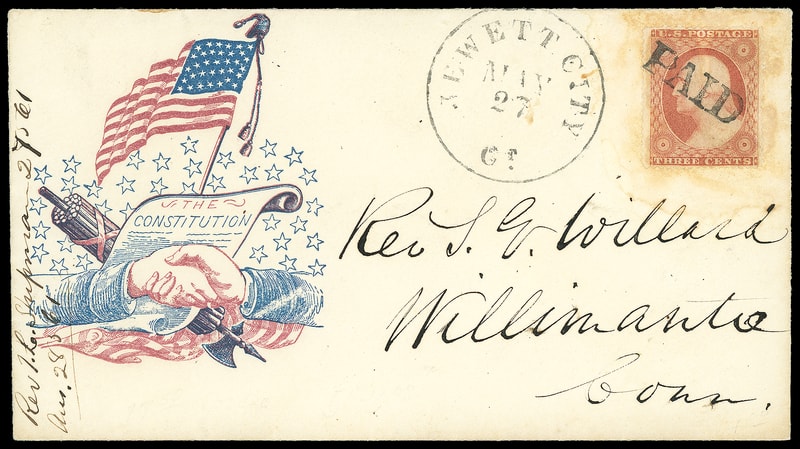 THE
CONSTITUTION
JEWETT CITY
MAY
27
CT.
U.S. POSTAGE
THREE CENTS
PAID
Rev S. G. Willard
Willimantic
Conn.
Rev T. L. Shipman 27 5/61
Ans. 28 5/61